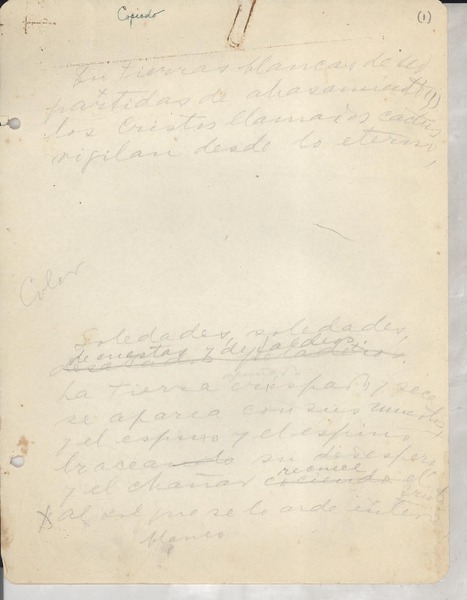 Copiado
(1)
En tierras blancas de sed
partidas de abrasamiento
los Cristos llamados cactus
vigilan desde lo eterno,
Color
Soledades, soledades,
de cuestas y de faldeos.
La tierra crispada y seca
se aparea con sus muertos,
y el espino y el espino
braceando su desespero,
y el chañar cociendo el fruto
recuece
al sol que se lo arde entero
blanco